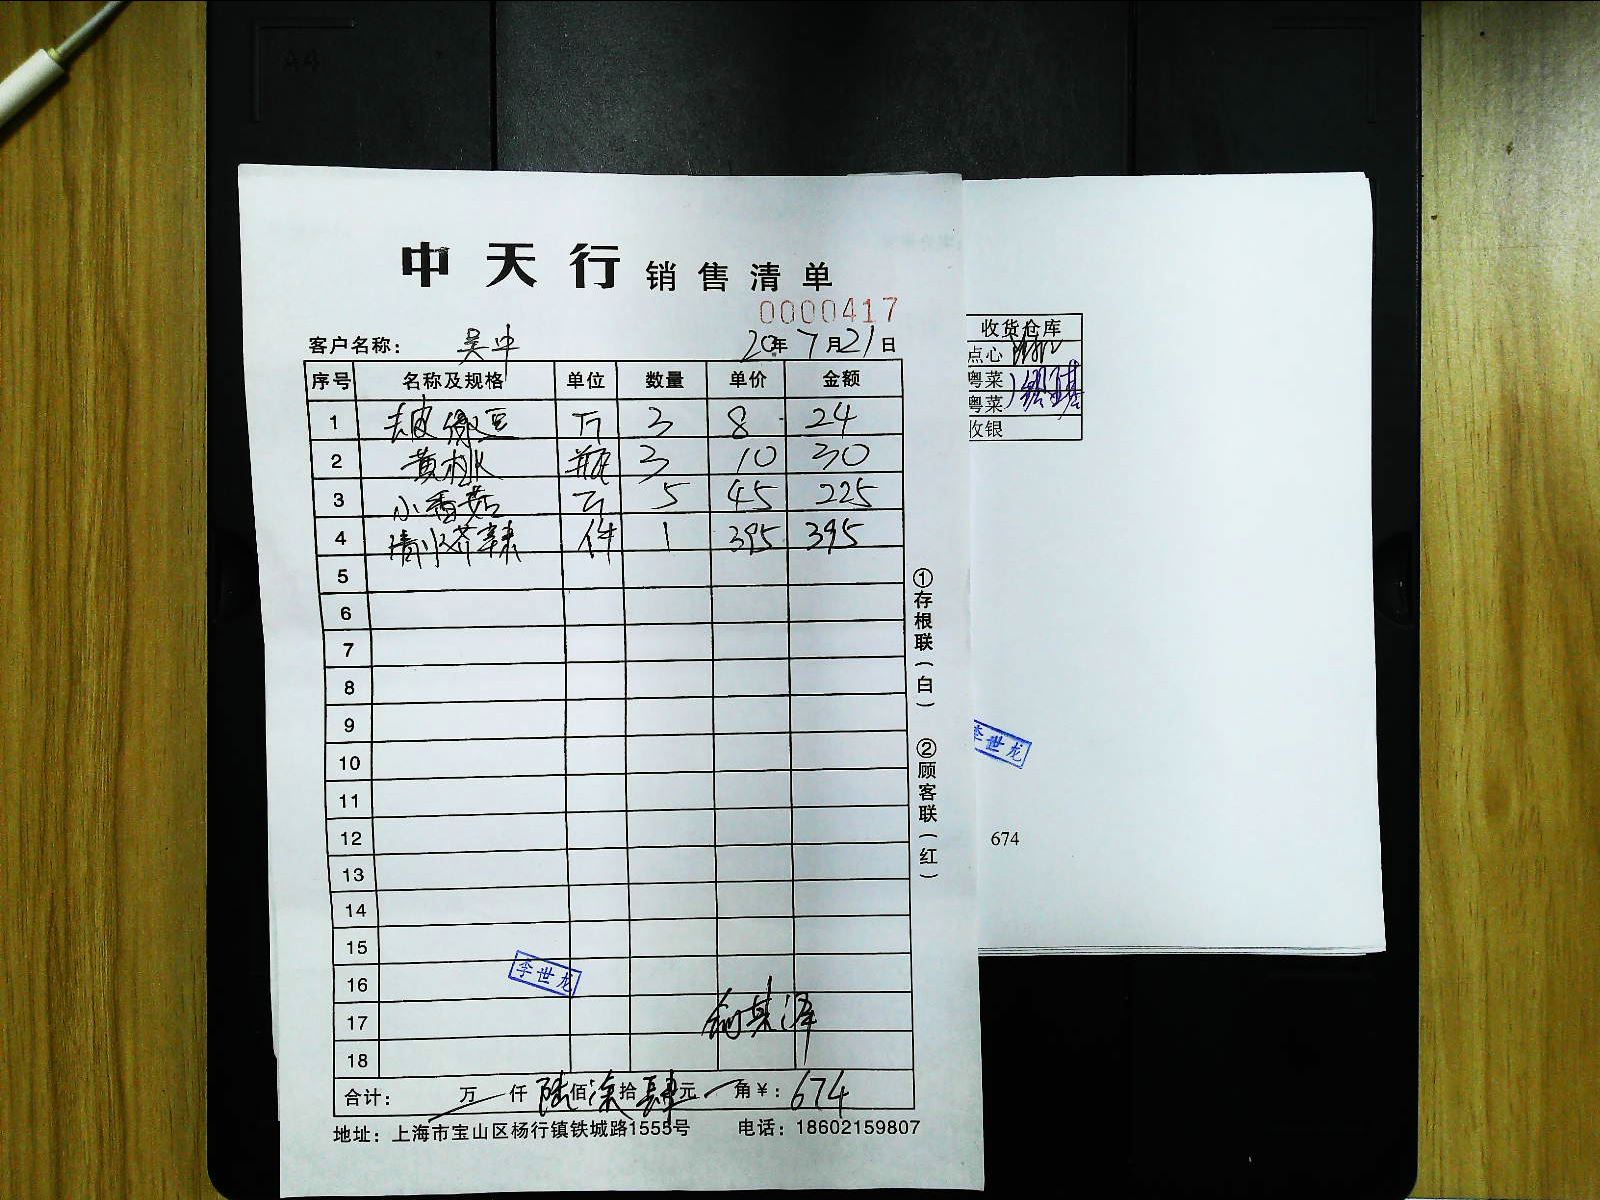 中天行 销售清单
0000417
客户名称： 吴中 20年7月21日
序号 名称及规格 单位 数量 单价 金额
1 去皮绿豆 斤 3 8 24
2 黄桃 瓶 3 10 30
3 小香菇 斤 5 45 225
4 清水荞头 件 1 395 395
5
6
7
8
9
10
11
12
13
14
15
16 李世龙
17
18
合计： 万 仟 陆佰柒拾肆元 角¥：674
地址：上海市宝山区杨行镇铁城路1555号 电话：18602159807
①存根联（白） ②顾客联（红）
收货仓库
点心
粤菜
粤菜
收银
李世龙
674